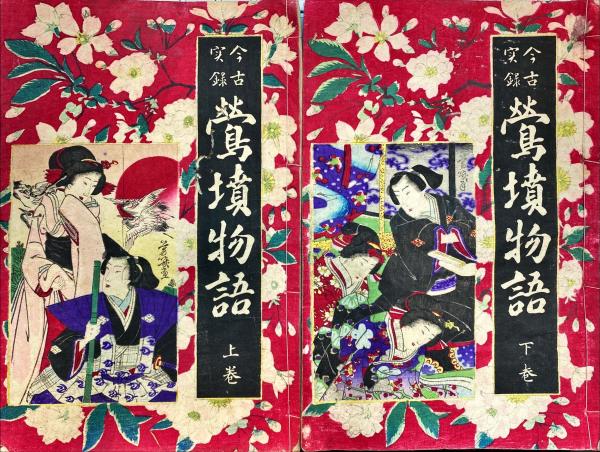 今古
実録
鶯墳物語
上巻
今古
実録
鶯墳物語
下巻